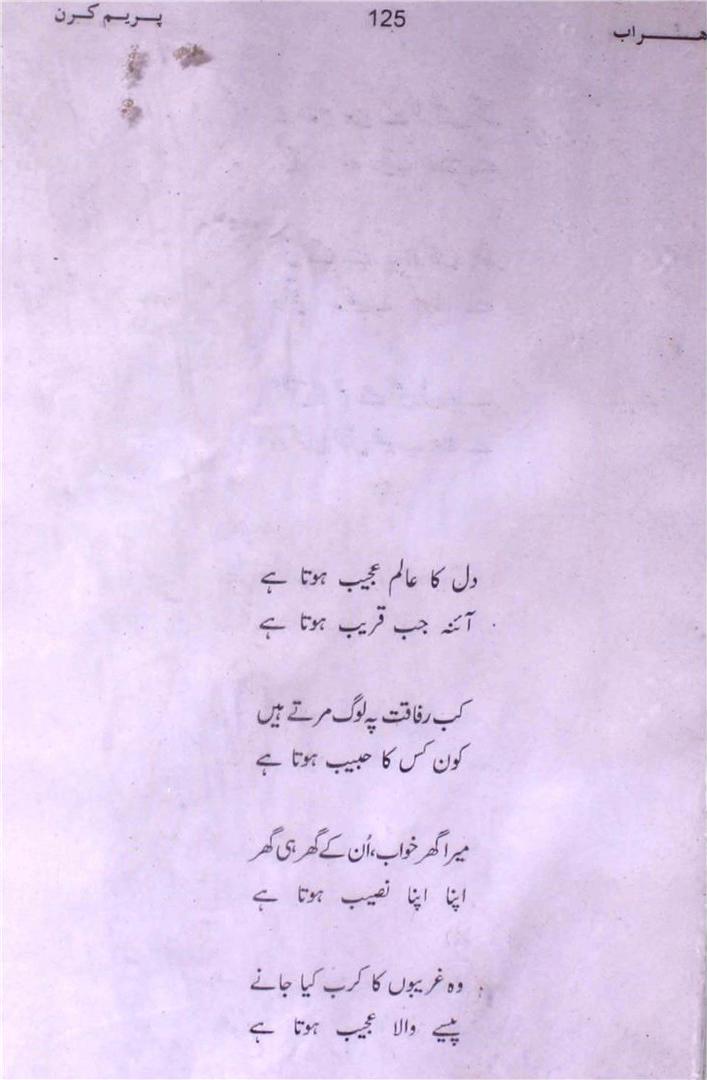 پریم کرن
125
دل کا عالم عجیب ہوتا ہے
آئنہ جب قریب ہوتا ہے
کب رفاقت پہ لوگ مرتے ہیں
کون کس کا حبیب ہوتا ہے
میرا گھر خواب، اُن کے گھر ہی گھر
اپنا اپنا نصیب ہوتا ہے
وہ غریبوں کا کرب کیا جانے
پیسے والا عجیب ہوتا ہے